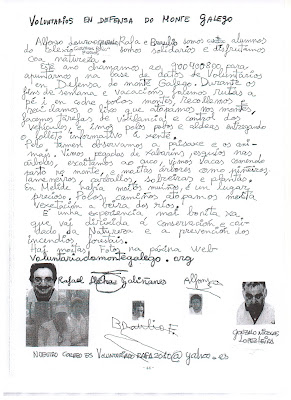 VOLUNTARIOS EN DEFENSA DO MONTE GALEGO
Alfonso, Rafa e Braulio somos catro alumnos
do colexio somos solidarios e disfrutamos
coa natureza.
Este ano chamamos ao 900400800 para
apuntarnos na base de datos de Voluntarios
en Defensa do monte Galego. Durante os
fins de semana e vacacións facemos rutas a
pé e en coche polos montes. Recollemos e
reciclamos o lixo que atopamos nos montes
facemos tarefas de vixilancia e control dos
vehículos, e imos polos pobos e aldeas entregando
o folleto informativo do monte.
Polo tamén observamos a paisaxe e os ani-
mais. Vimos pegadas de xabaríns, esquíos nas
árbores. Escoitamos ao cuco, vimos vacas comendo
pasto no monte, e moitas árbores como piñeiros
ameneiros, carballos, sobreiras e acivido.
En Melide había moitos muíños, é un lugar
precioso. Polos camiños atopamos moita
vexetación a beira dos ríos.
É unha experiencia moi bonita xa
que vai dirixida á conservación e coi-
dado da Natureza e a prevención dos
incendios forestais.
Hai moitas fotos na páxina Web
Voluntariadomontegalego.org
Rafael Galiñanes
Alfonso
Braulio F.
GONZALO
LOPEZ
NUESTRO CORREO ES VOLUNTARIORAFA2010@yahoo.es